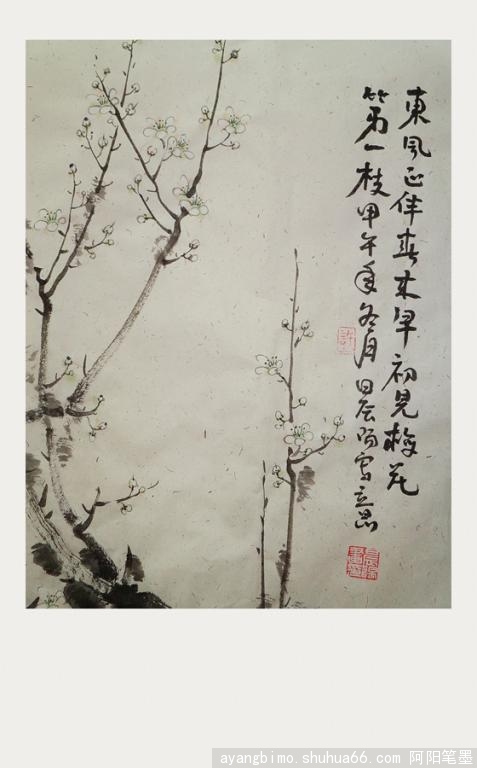 東風正伴春來早初見梅花
第一枝甲午年冬月晨陽寫意
許
ayangbimo.shuhua66.com 阿阳笔墨